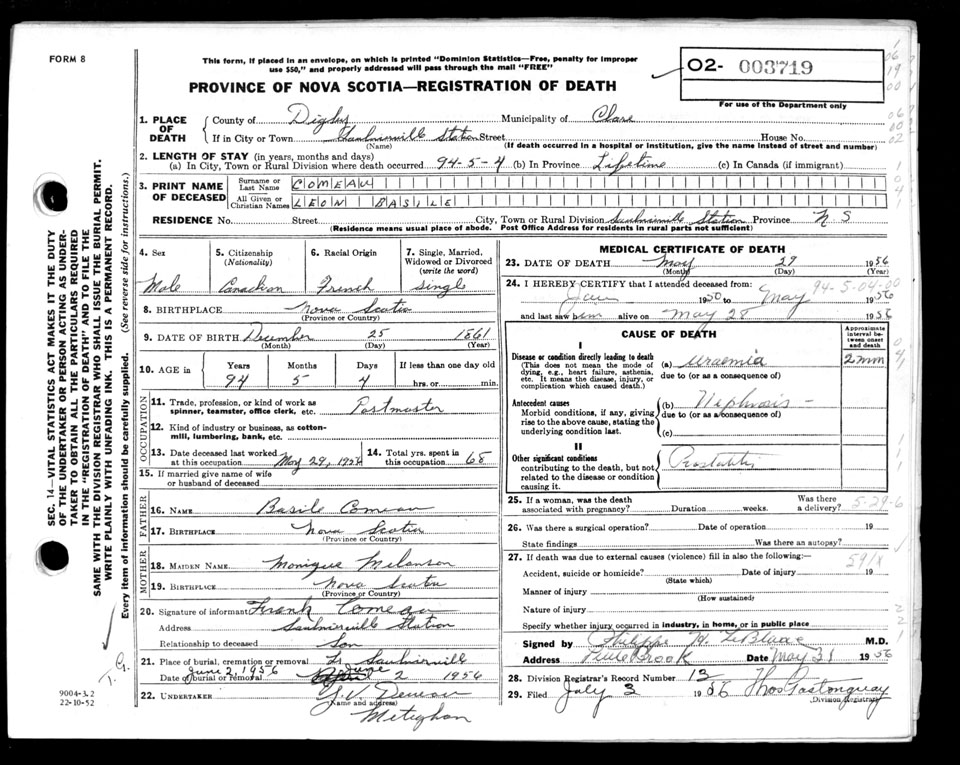 FORM 8
This form, if placed in an envelope, on which is printed "Dominion Statistics—Free, penalty for improper
use $50," and properly addressed will pass through the mail "FREE"
02- 003719
PROVINCE OF NOVA SCOTIA—REGISTRATION OF DEATH
For use of the Department only
1. PLACE OF DEATH County of Digby Municipality of Clare
If in City or Town Saulnierville Station Street House No.
(Name) (If death occurred in a hospital or institution, give the name instead of street and number)
2. LENGTH OF STAY (in years, months and days)
(a) In City, Town or Rural Division where death occurred 94-5-4 (b) In Province Lifetime (c) In Canada (if immigrant)
3. PRINT NAME OF DECEASED Surname or Last Name COMEAU
All Given or Christian Names LEON BASILE
RESIDENCE No. Street City, Town or Rural Division Saulnierville Station Province N S
(Residence means usual place of abode. Post Office Address for residents in rural parts not sufficient)
4. Sex Male
5. Citizenship (Nationality) Canadian
6. Racial Origin French
7. Single, Married, Widowed or Divorced (write the word) Single
8. BIRTHPLACE Nova Scotia
(Province or Country)
9. DATE OF BIRTH December 25 1861
(Month) (Day) (Year)
10. AGE in Years 94 Months 5 Days 4 If less than one day old hrs. or min.
OCCUPATION
11. Trade, profession, or kind of work as
spinner, teamster, office clerk, etc. Postmaster
12. Kind of industry or business, as cotton-
mill, lumbering, bank, etc.
13. Date deceased last worked at this occupation May 29, 1956
14. Total yrs. spent in this occupation 68
15. If married give name of wife
or husband of deceased
FATHER
16. NAME Basile Comeau
17. BIRTHPLACE Nova Scotia
(Province or Country)
MOTHER
18. MAIDEN NAME Monique Melanson
19. BIRTHPLACE Nova Scotia
(Province or Country)
20. Signature of informant Frank Comeau
Address Saulnierville Station
Relationship to deceased Son
21. Place of burial, cremation or removal Saulnierville
June 2, 1956
Date of burial or removal June 2 1956
22. UNDERTAKER
(Name and address)
Meteghan
MEDICAL CERTIFICATE OF DEATH
23. DATE OF DEATH May 29 1956
(Month) (Day) (Year)
24. I HEREBY CERTIFY that I attended deceased from:
94-5-04-00
Jan 1950 to May 1956
and last saw him alive on May 28 1956
CAUSE OF DEATH
Approximate interval between onset and death
I
Disease or condition directly leading to death
(This does not mean the mode of
dying, e.g., heart failure, asthenia,
etc. It means the disease, injury, or
complication which caused death.)
(a) Uraemia
due to (or as a consequence of)
Antecedent causes
Morbid conditions, if any, giving
rise to the above cause, stating the
underlying condition last.
(b) Nephrosis
due to (or as a consequence of)
(c)
II
Other significant conditions
contributing to the death, but not
related to the disease or condition
causing it.
25. If a woman, was the death
associated with pregnancy? Duration weeks. Was there a delivery?
5-29-6
26. Was there a surgical operation? Date of operation 19
State findings Was there an autopsy?
27. If death was due to external causes (violence) fill in also the following:—
Accident, suicide or homicide? Date of injury 19
(State which)
591X
Manner of injury
(How sustained)
Nature of injury
Specify whether injury occurred in industry, in home, or in public place
Signed by Philippe H. LeBlanc M.D.
Address Little Brook Date May 31 1956
28. Division Registrar's Record Number 13
29. Filed July 3 1956 Thos Gastonguay
(Division Registrar)
SEC. 14—VITAL STATISTICS ACT MAKES IT THE DUTY
OF THE UNDERTAKER OR PERSON ACTING AS UNDER-
TAKER TO OBTAIN ALL THE PARTICULARS REQUIRED
IN THE "REGISTRATION OF DEATH" AND TO FILE THE
SAME WITH THE DIVISION REGISTRAR WHO SHALL ISSUE THE BURIAL PERMIT.
WRITE PLAINLY WITH UNFADING INK. THIS IS A PERMANENT RECORD.
Every item of information should be carefully supplied. (See reverse side for instructions.)
9004-3.2
22-10-52